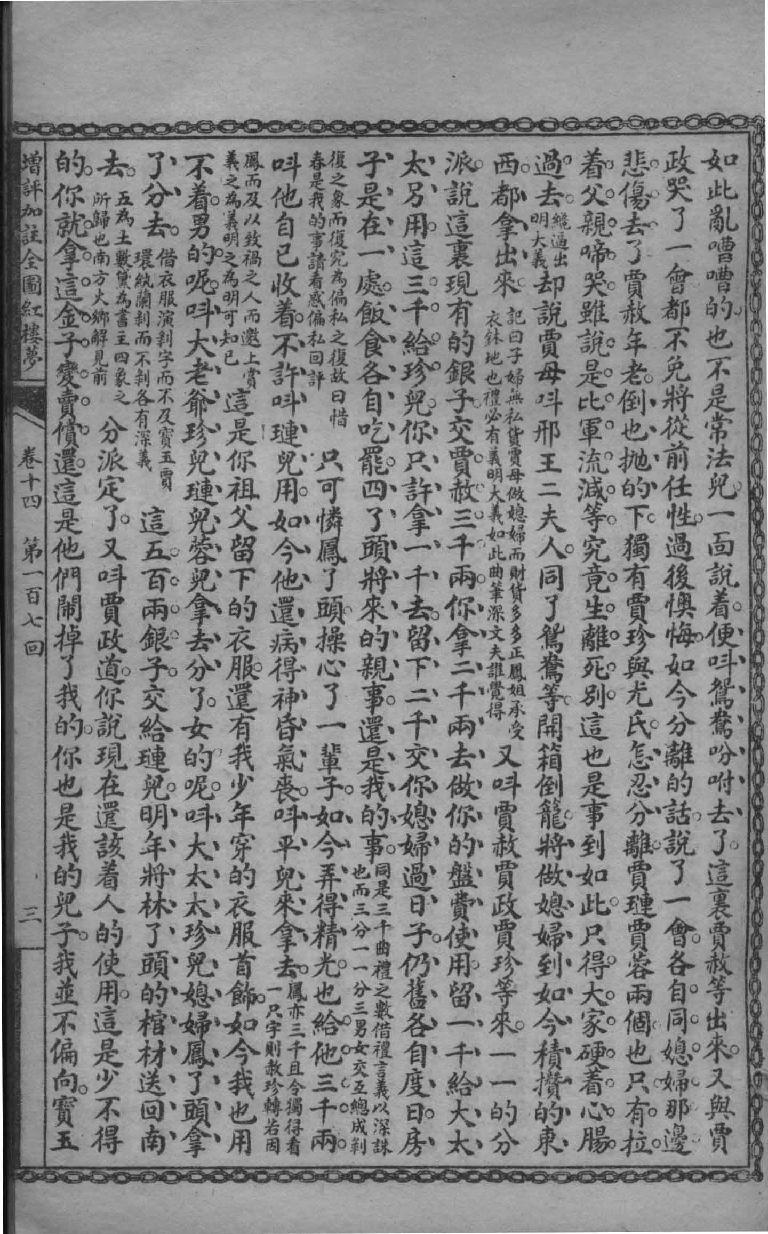 如此亂嘈嘈的也不是常法兒一面說着便呌鴛鴦吩咐去了這裏賈赦等出來又與賈
政哭了一會都不免將從前任性過後懊悔如今分離的話說了一會各自同媳婦那邊
悲傷去了賈赦年老倒也抛的下獨有賈珍與尤氏怎忍分離賈璉賈蓉兩個也只有拉
着父親啼哭雖說是比軍流減等究竟生離死別這也是事到如此只得大家硬着心腸
過去纔逼出明大義却說賈母呌邢王二夫人同了鴛鴦等開箱倒籠將做媳婦到如今積攢的東
西都拿出來記曰子婦無私貨賈母做媳婦而財貨多多正鳳姐承受衣鉢地也禮必有義明大義如此曲筆深文夫誰覺得又呌賈赦賈政賈珍等來一一的分
派說這裏現有的銀子交賈赦三千兩你拿二千兩去做你的盤費使用留一千給大太
太另用這三千給珍兒你只許拿一千去留下二千交你媳婦過日子仍舊各自度日房
子是在一處飯食各自吃罷四丫頭將來的親事還是我的事同是三千曲禮之數借禮言義以深誅也而三分一一分三男女交互總成剥
復之象而復究為偏私之復故曰惜春是我的事請看感偏私回評只可憐鳳丫頭操心了一輩子如今弄得精光也給他三千兩
呌他自已收着不許呌璉兒用如今他還病得神昏氣喪呌平兒來拿去鳳亦三千且令獨得看一只字則赦珍轉若因
鳳而及以致禍之人而邀上賞義之為義明之為明可知已這是你祖父留下的衣服還有我少年穿的衣服首飾如今我也用
不着男的呢呌大老爺珍兒璉兒蓉兒拿去分了女的呢呌大太太珍兒媳婦鳳丫頭拿
了分去借衣服演剥字而不及寳玉賈環紈蘭剥而不剥各有深義這五百兩銀子交給璉兒明年將林丫頭的棺材送回南
去五為土數黛為書主四象之所歸也南方火鄉解見前分派定了又呌賈政道你說現在還該着人的使用這是少不得
的你就拿這金子變賣償還這是他們鬧掉了我的你也是我的兒子我並不偏向寳玉
增評加註全圖紅樓夢 卷十四 第一百七回 三